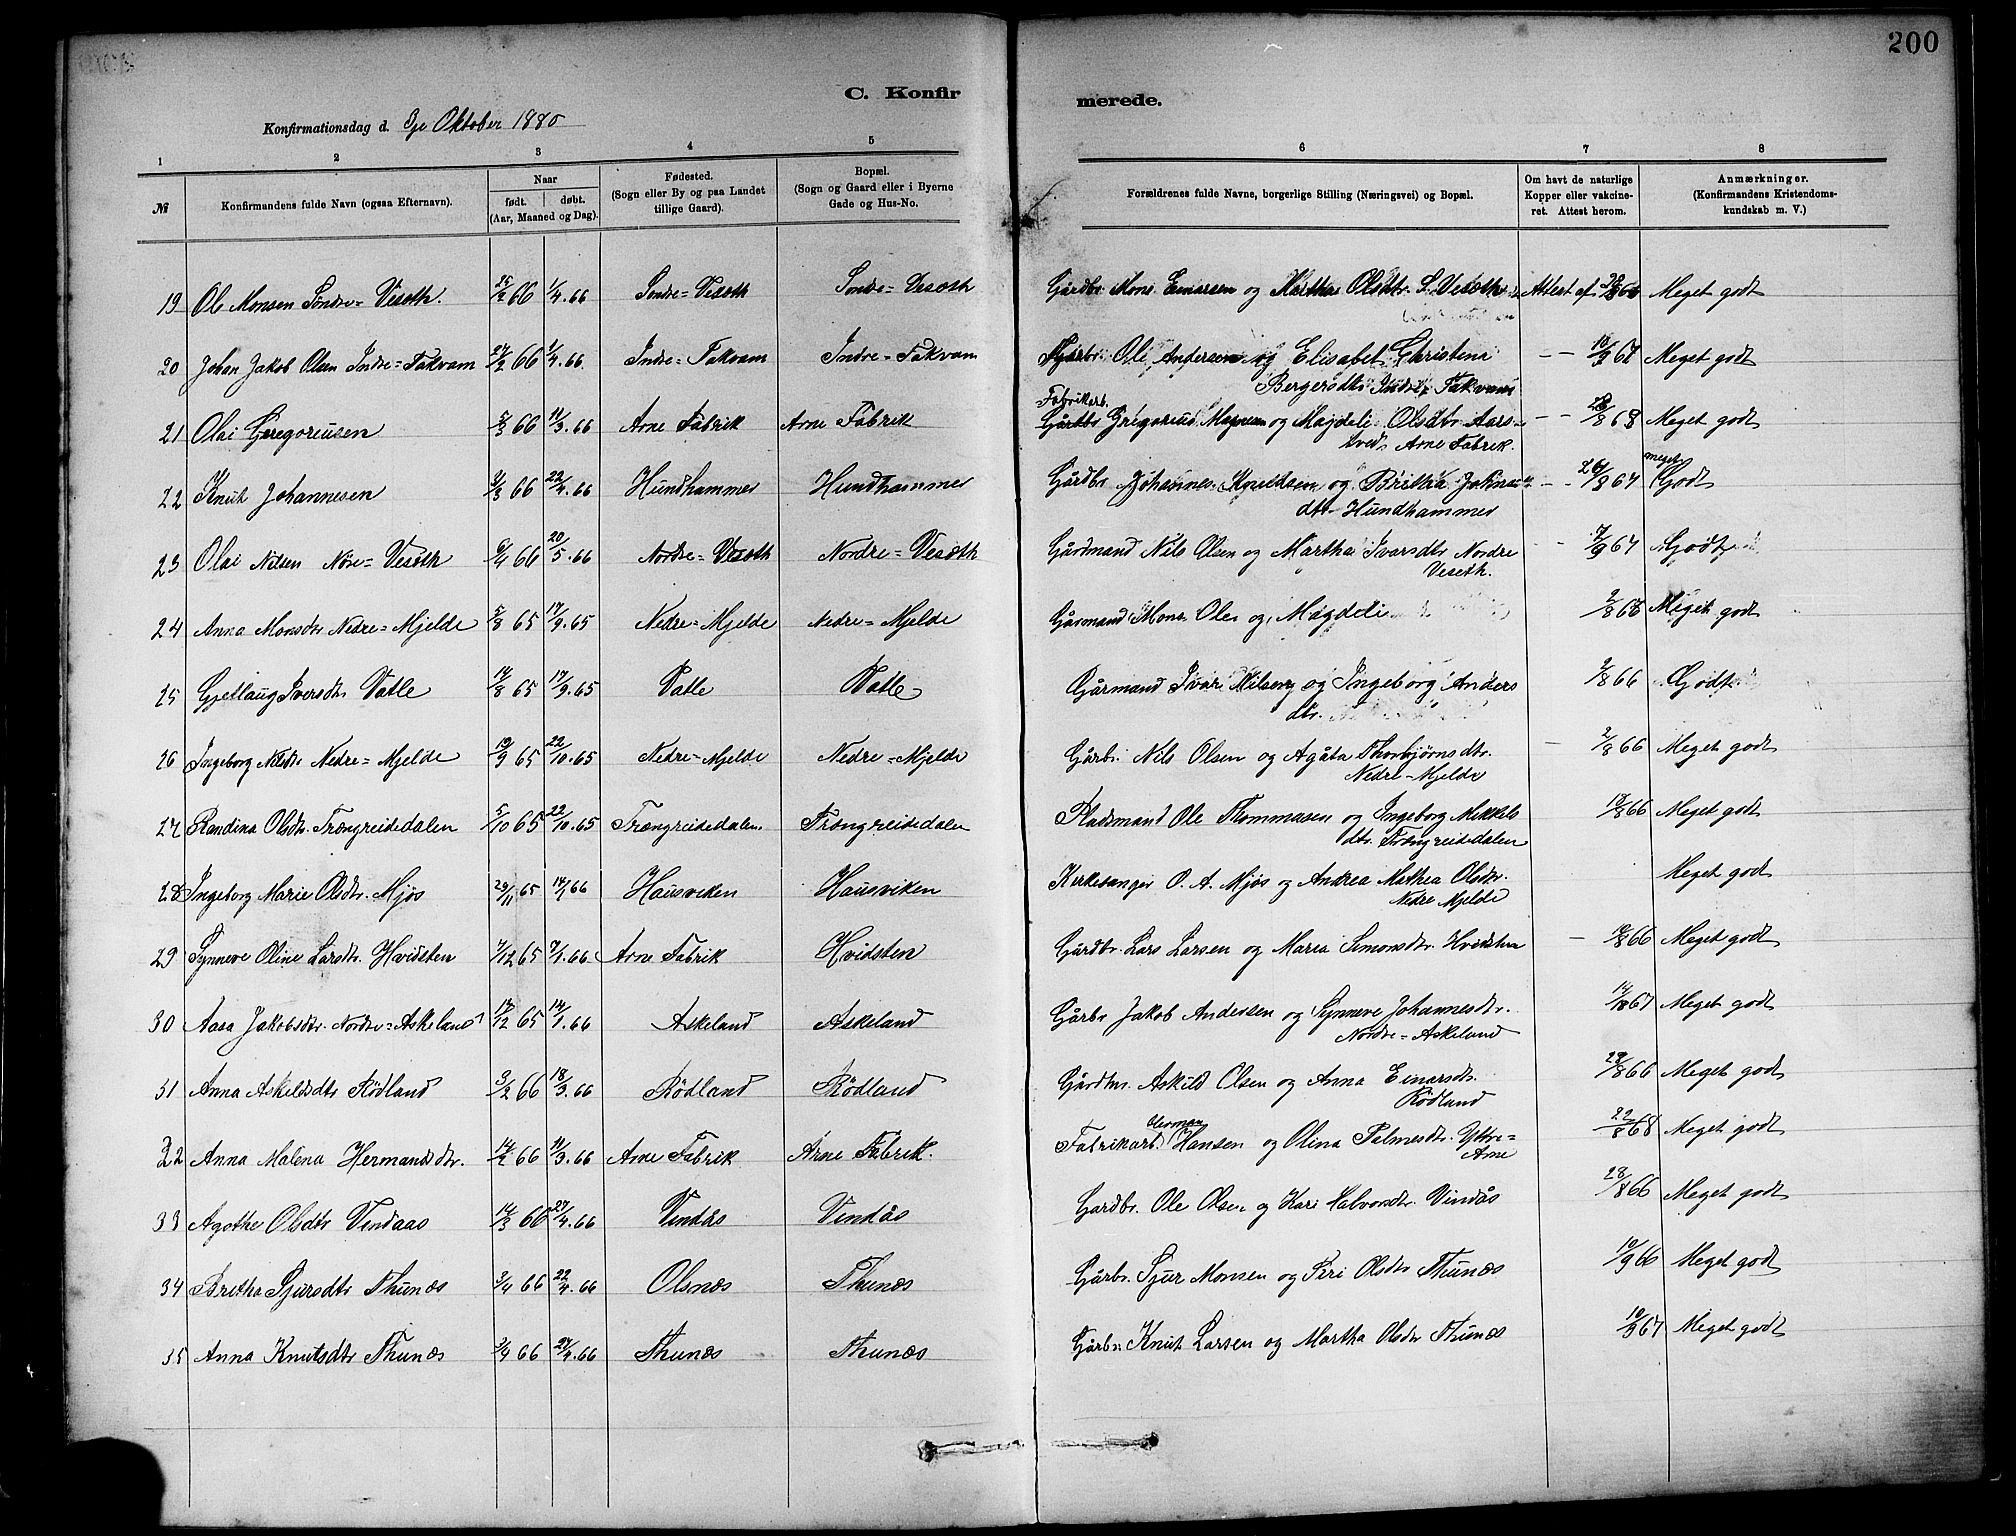 200
C. Konfirmerede.
Konfirmationsdag d. 3je Oktober 1880
1 2 3 4 5 6 7 8
№ Konfirmandens fulde Navn (ogsaa Efternavn). Naar født. døbt. (Aar, Maaned og Dag). Fødested. (Sogn eller By og paa Landet tillige Gaard). Bopæl. (Sogn og Gaard eller i Byerne Gade og Hus-No. Forældrenes fulde Navne, borgerlige Stilling (Næringsvei) og Bopæl. Om havt de naturlige Kopper eller vakcineret. Attest herom. Anmærkninger. (Konfirmandens Kristendomskundskab m. V.)
19 Ole Monsen Söndre=Vesøth. 25/2 66 1/4.66 Söndre=Vesøth Söndre=Vesøth Gårdbr. Mons Einarsen og Martha Olsdtr. S. Vesøth Attest af Meget godt
20 Johan Jakob Olsen Indre=Takvam 27/2 66 1/4.66 Indre=Takvam Indre=Takvam Ole Andersen og Elisabet Christene - - 10/9 67 Meget godt
Bergersdtr Indre Takvam
Fabrikarb.
21 Olai Gregoriusen 5/3 66 11/3.66 Arne Fabrik Arne Fabrik Gårdbr Gregorius Magnesen og Magdeli Olsdtr Aars= - - 28/8 68 Meget godt
tved Arne Fabrik.
22 Knut Johannesen 9/3 66 22/4.66 Hundhammer Hundhammer Gårdbr Johannes Knudsen og Britha - - 26/8 67 meget Godt
dtr Hundhammer
23 Olai Nilsen Nöre=Vesøth 6/4 66 20/5.66 Nordre=Vesøth Nordre=Vesøth Gårdmand Nils Olsen og Martha Ivarsdtr Nordre - 7/9 67 Godt
Veseth.
24 Anna Monsdtr Nedre=Mjelde 5/8 65 17/9.65 Nedre=Mjelde Nedre=Mjelde Gårmand Mons Olsen og Magdeli 2/8 66 Meget godt
25 Gjetlaug Iversdtr Vatle 14/8 65 17/9.65 Vatle Vatle Gårmand Ivar Nilsen og Ingeborg Anders 2/8 66 Godt
dtr.
26 Ingeborg Nilsdtr Nedre=Mjelde 19/9 65 22/10.65 Nedre=Mjelde Nedre=Mjelde Gårbr. Nils Olsen og Agåta Thorbjørnsdtr. - 2/8 66 Meget godt
Nedre=Mjelde
27 Randina Olsdtr. Trængreidedalen 5/10 65 22/10.65 Trængreidedalen. Trængreidedalen Pladsmand Ole Thommasen og Ingeborg Mikkels 17/8 66 Meget godt
dtr. Trængreidedalen
28 Ingeborg Marie Olsdtr. Mjøs 29/11 65 14/1 66 Hausviken Hausviken Kirkesanger O. A. Mjøs og Andrea Mathea Olsdtr. Meget godt
Nedre Mjelde
29 Synneve Oline Larsdtr. Hvidsten 7/12 65 7/1.66 Arne Fabrik Hvidsten Gårdbr. Lars Larsen og Maria Simonsdtr. Hvidsten - 17/8 66 Meget godt
30 Aasa Jakobsdtr. Nordre=Askeland 17/12 65 14/1.66 Askeland Askeland Gårbr Jakob Andersen og Synneve Johannesdtr. 67 Meget godt
Nordre=Askeland
31 Anna Askeldsdtr Rödland 3/2 66 18/3.66 Rödland Rödland Gårdbr. Askild Olsen og Anna Einarsdtr. 29/8 66 Meget godt
Rödland
22 Anna Malena Hermandsdtr. 14/2 66 11/3.66 Arne Fabrik Arne Fabrik. Fabrikarb. Herman Hansen og Olina Palmesdtr. Yttre= 22/8 68 Meget godt
Arne
33 Agothe Olsdtr Vindaas 14/3 66 27/4.66 Vindås Vindås Gardbr. Ole Olsen og Kari Halvorsdtr. Vindås 28/8 66 Meget godt
34 Britha Sjursdtr Thunæs 3/4 66 22/4.66 Olsnæs Thunæs Gårbr. Sjur Monsen og Peri Olsdtr Thunæs 10/9 66 Meget godt
35 Anna Knutsdtr Thunæs 3/4 66 27/4.66 Thunæs Thunæs Gårbr. Knut Larsen og Martha Olsdtr Thunæs 10/9 67 Meget godt